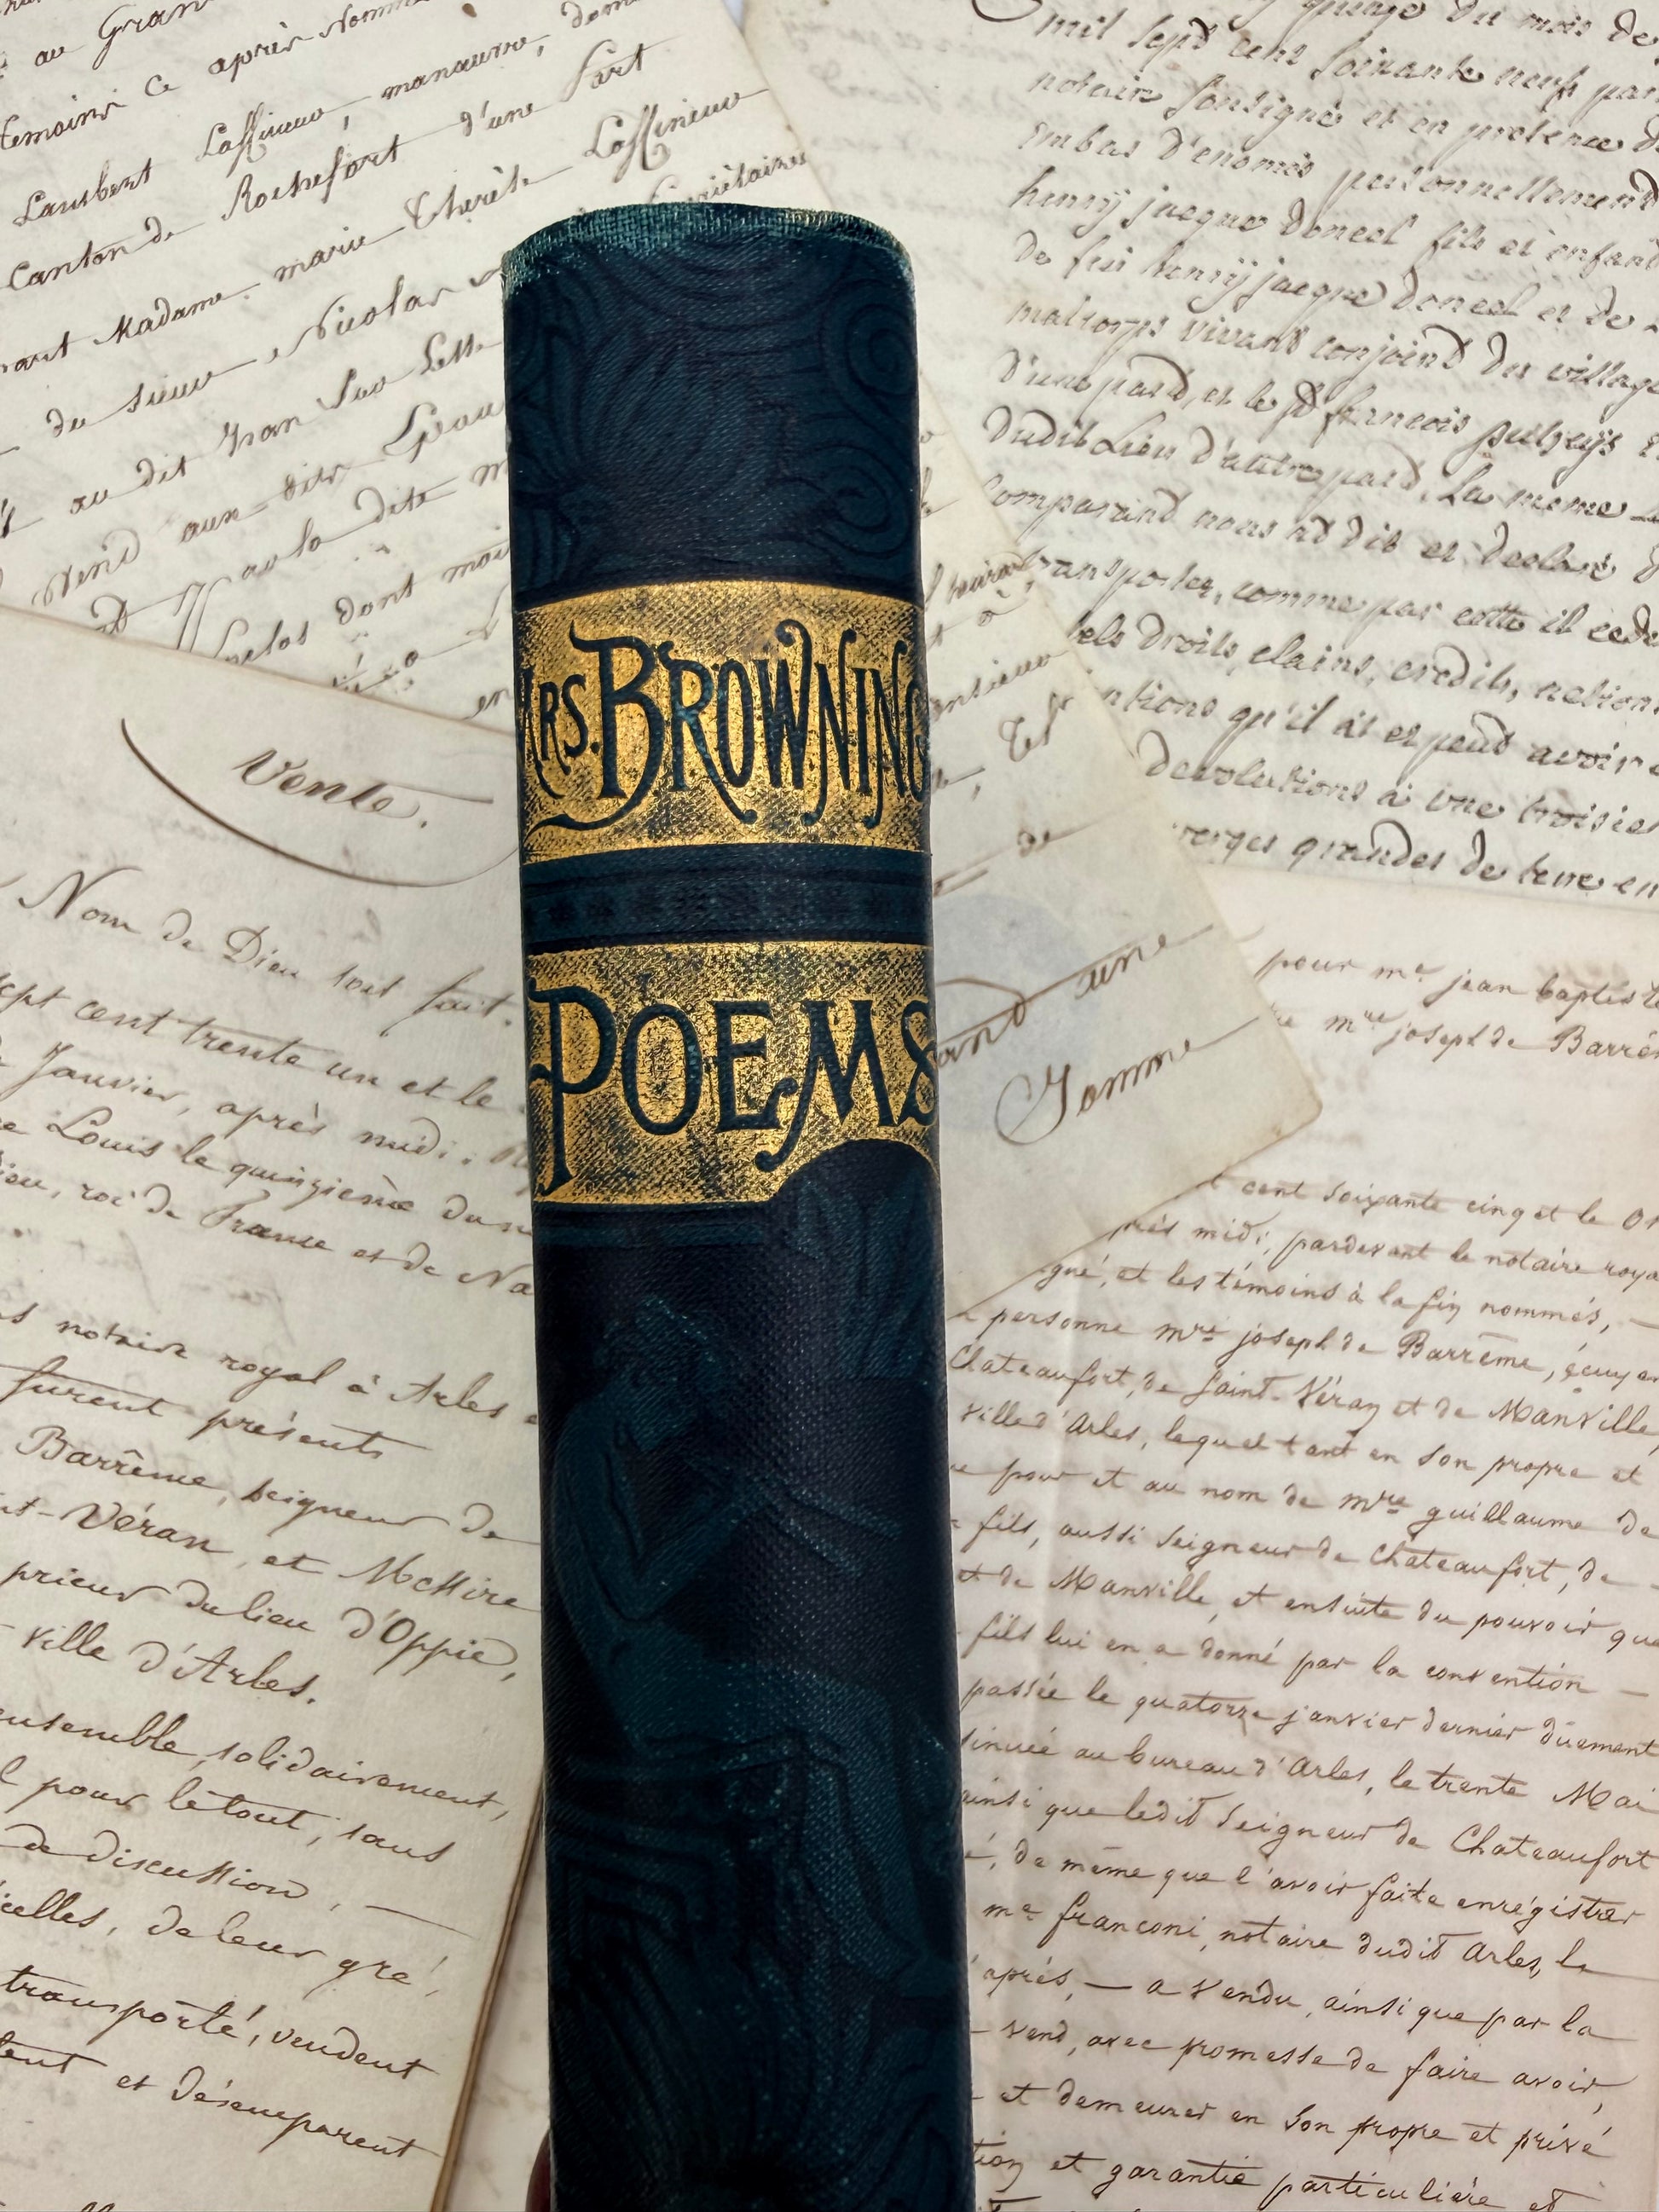 au Gran
temoins ce après nommé
Lambert Laffineur, manœuvre, deme
Canton de Rochefort d'une part
Madame marie Therèse Laffineur
du sieur Nicolas
au dit Jean
vend aux dits Epoux
au la dite
dont moi
en
MRS. BROWNING
POEMS
Vente.
Nom de Dieu soit fait.
sept cent trente un et le
Janvier, après midi:
Louis le quinzieme du n
roi de France et de Na
notaire royal à Arles
furent présents
Barrême, seigneur de
nt-Véran, et Messire
prieur du lieu d'Oppie,
ville d'Arles.
ensemble, solidairement,
pour le tout, sans
de discussion, —
de leur gré,
transporté, vendent
et désemparent
du mois de
mil sept cent soixante neuf par
notair soussigné et en presence de
embas d'enomés personnellement
henry jacque doneel fils et enfant
de feu henry jacque doneel et de
malcorps vivant conjoint du village
d'une pard, et le Sr francois
dudit Lieu d'autre pard. La meme
Comparand nous at dit et declaré
transporter, comme par cette il cede
tels droits, clains, credits, action
ntions qu'il at et peud avoir
devolutions à une troisie
verges grandes de terre en
de
une
Somme
pour me. jean baptiste
mre joseph de Barrê
cent soixante cinq et le
près midi, pardevant le notaire roya
gné, et les témoins à la fin nommés, —
personne mre joseph de Barrême, écuyer
Chateaufort, de saint-Véran et de Manville,
ville d'Arles, lequel tant en son propre et
pour et au nom de mre guillaume de
fils, aussi seigneur de Chateaufort, de -
et de Manville, et ensuite du pouvoir que
fils lui en a donné par la convention —
passée le quatorze janvier dernier düement
sinuée au bureau d'Arles, le trente Mai
ainsi que ledit seigneur de Chateaufort
é, de même que l'avoir faite enrégistrer
me franconi, notaire dudit Arles, le
après, — a vendu, ainsi que par la
- vend, avec promesse de faire avoir,
- et demeurer en son propre et privé
tion et garantie particuliére et